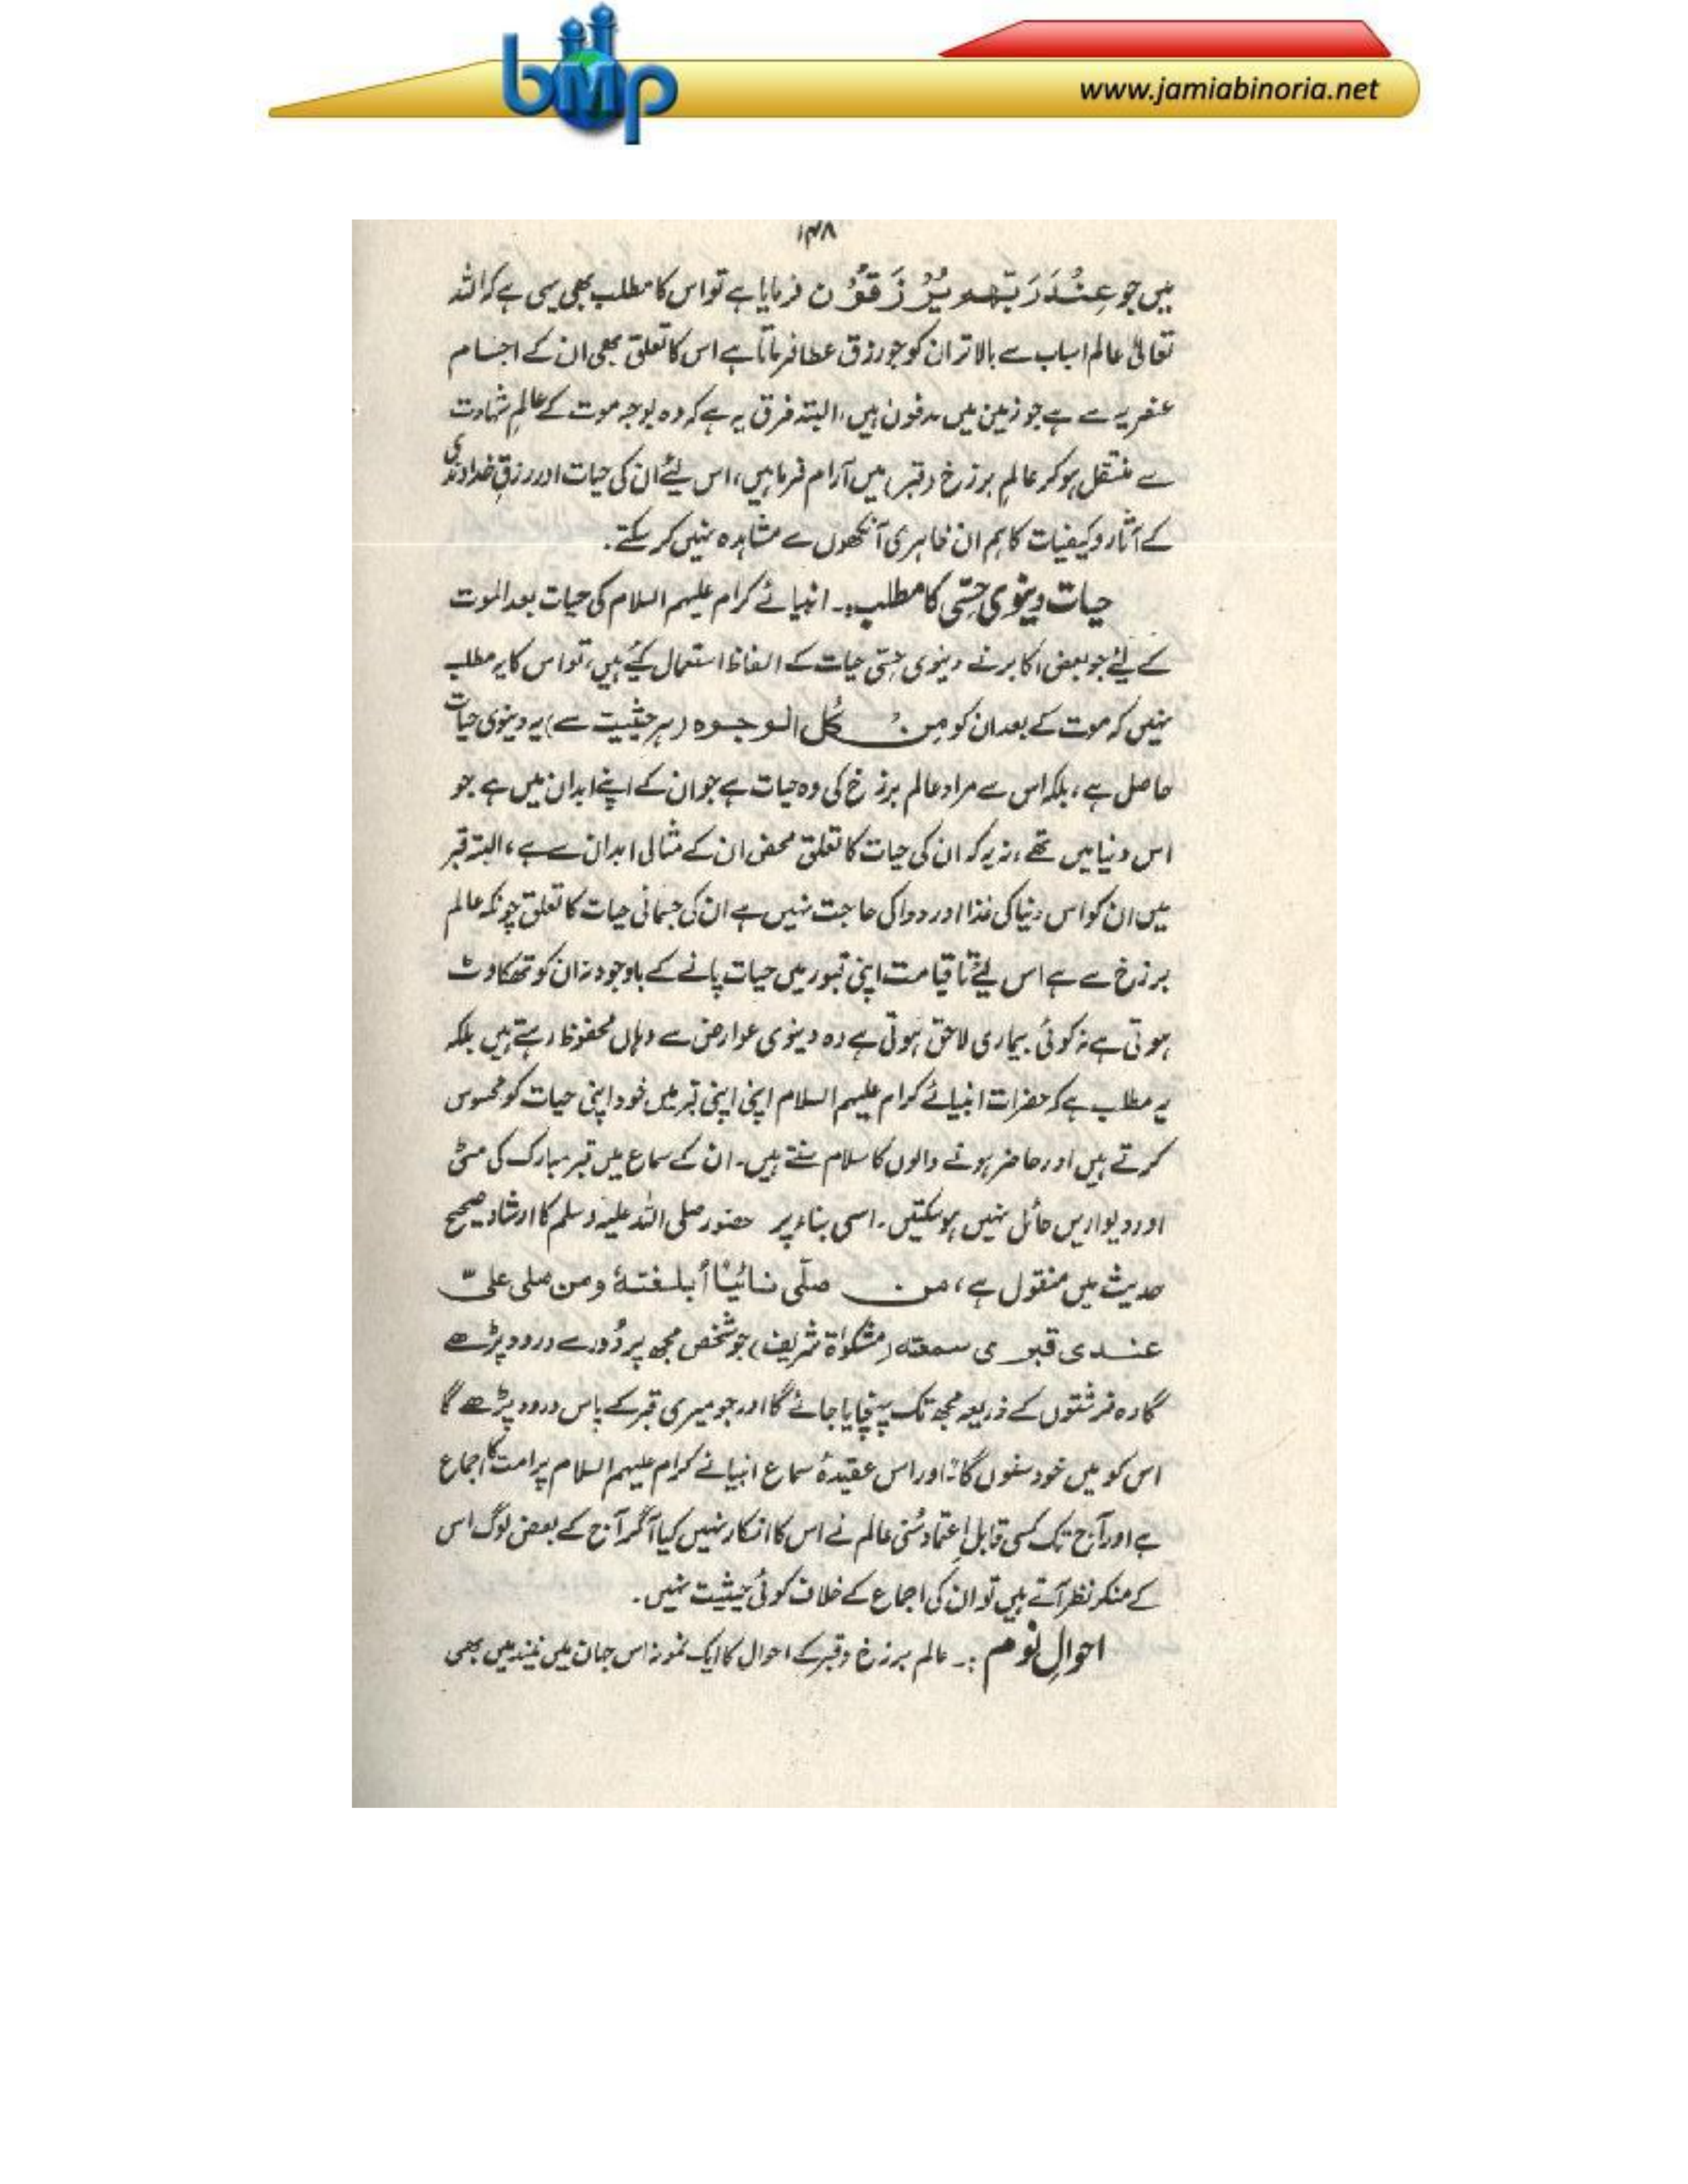 bmp
www.jamiabinoria.net
۱۴۸
میں جو عِنْدَ رَبِّهِم يُرْزَقُوْن فرمایا ہے تو اس کا مطلب بھی یہی ہے کہ اللہ
تعالیٰ عالم اسباب سے بالاتر ان کو جو رزق عطا فرماتا ہے اس کا تعلق بھی ان کے اجسام
عنصریہ سے ہے جو زمین میں مدفون ہیں، البتہ فرق یہ ہے کہ وہ بوجہ موت کے عالمِ شہادت
سے منتقل ہو کر عالمِ برزخ (قبر) میں آرام فرما ہیں، اس لیے ان کی حیات اور رزقِ خداوندی
کے آثار و کیفیات کا ہم ان ظاہری آنکھوں سے مشاہدہ نہیں کر سکتے.
حیات دینوی حِسّی کا مطلب:۔ انبیائے کرام علیہم السلام کی حیات بعد الموت
کے لیے جو بعض اکابر نے دینوی حِسّی حیات کے الفاظ استعمال کیے ہیں، تو اس کا یہ مطلب
نہیں کہ موت کے بعد ان کو مِن کُل الوجوہ (ہر حیثیت سے) یہ دینوی حیات
حاصل ہے، بلکہ اس سے مراد عالم برزخ کی وہ حیات ہے جو ان کے اپنے ابدان میں ہے جو
اس دنیا میں تھے، نہ یہ کہ ان کی حیات کا تعلق محض ان کے مثالی ابدان سے ہے، البتہ قبر
میں ان کو اس دنیا کی غذا اور دوا کی حاجت نہیں ہے ان کی جسمانی حیات کا تعلق چونکہ عالم
برزخ سے ہے اس لیے تا قیامت اپنی قبور میں حیات پانے کے باوجود نہ ان کو تھکاوٹ
ہوتی ہے نہ کوئی بیماری لاحق ہوتی ہے وہ دینوی عوارض سے وہاں محفوظ رہتے ہیں بلکہ
یہ مطلب ہے کہ حضرات انبیائے کرام علیہم السلام اپنی اپنی قبر میں خود اپنی حیات کو محسوس
کرتے ہیں اور حاضر ہونے والوں کا سلام سنتے ہیں۔ ان کے سماع میں قبر مبارک کی مٹی
اور دیواریں حائل نہیں ہو سکتیں۔ اسی بناء پر حضور صلی اللہ علیہ وسلم کا ارشاد صحیح
حدیث میں منقول ہے، من صلّی نائیًا أبلغتهٔ ومن صلی علیّ
عندی قبری سمعته (مشکوٰۃ شریف) جو شخص مجھ پر دُور سے درود پڑھے
گا وہ فرشتوں کے ذریعہ مجھ تک پہنچایا جائے گا اور جو میری قبر کے پاس درود پڑھے گا
اس کو میں خود سنوں گا" اور اس عقیدۂ سماع انبیائے کرام علیہم السلام پر امت کا اجماع
ہے اور آج تک کسی قابلِ اعتماد سُنی عالم نے اس کا انکار نہیں کیا اگر آج کے بعض لوگ اس
کے منکر نظر آتے ہیں تو ان کی اجماع کے خلاف کوئی حیثیت نہیں۔
احوالِ نوم :۔ عالم برزخ و قبر کے احوال کا ایک نمونہ اس جہان میں نیند میں بھی